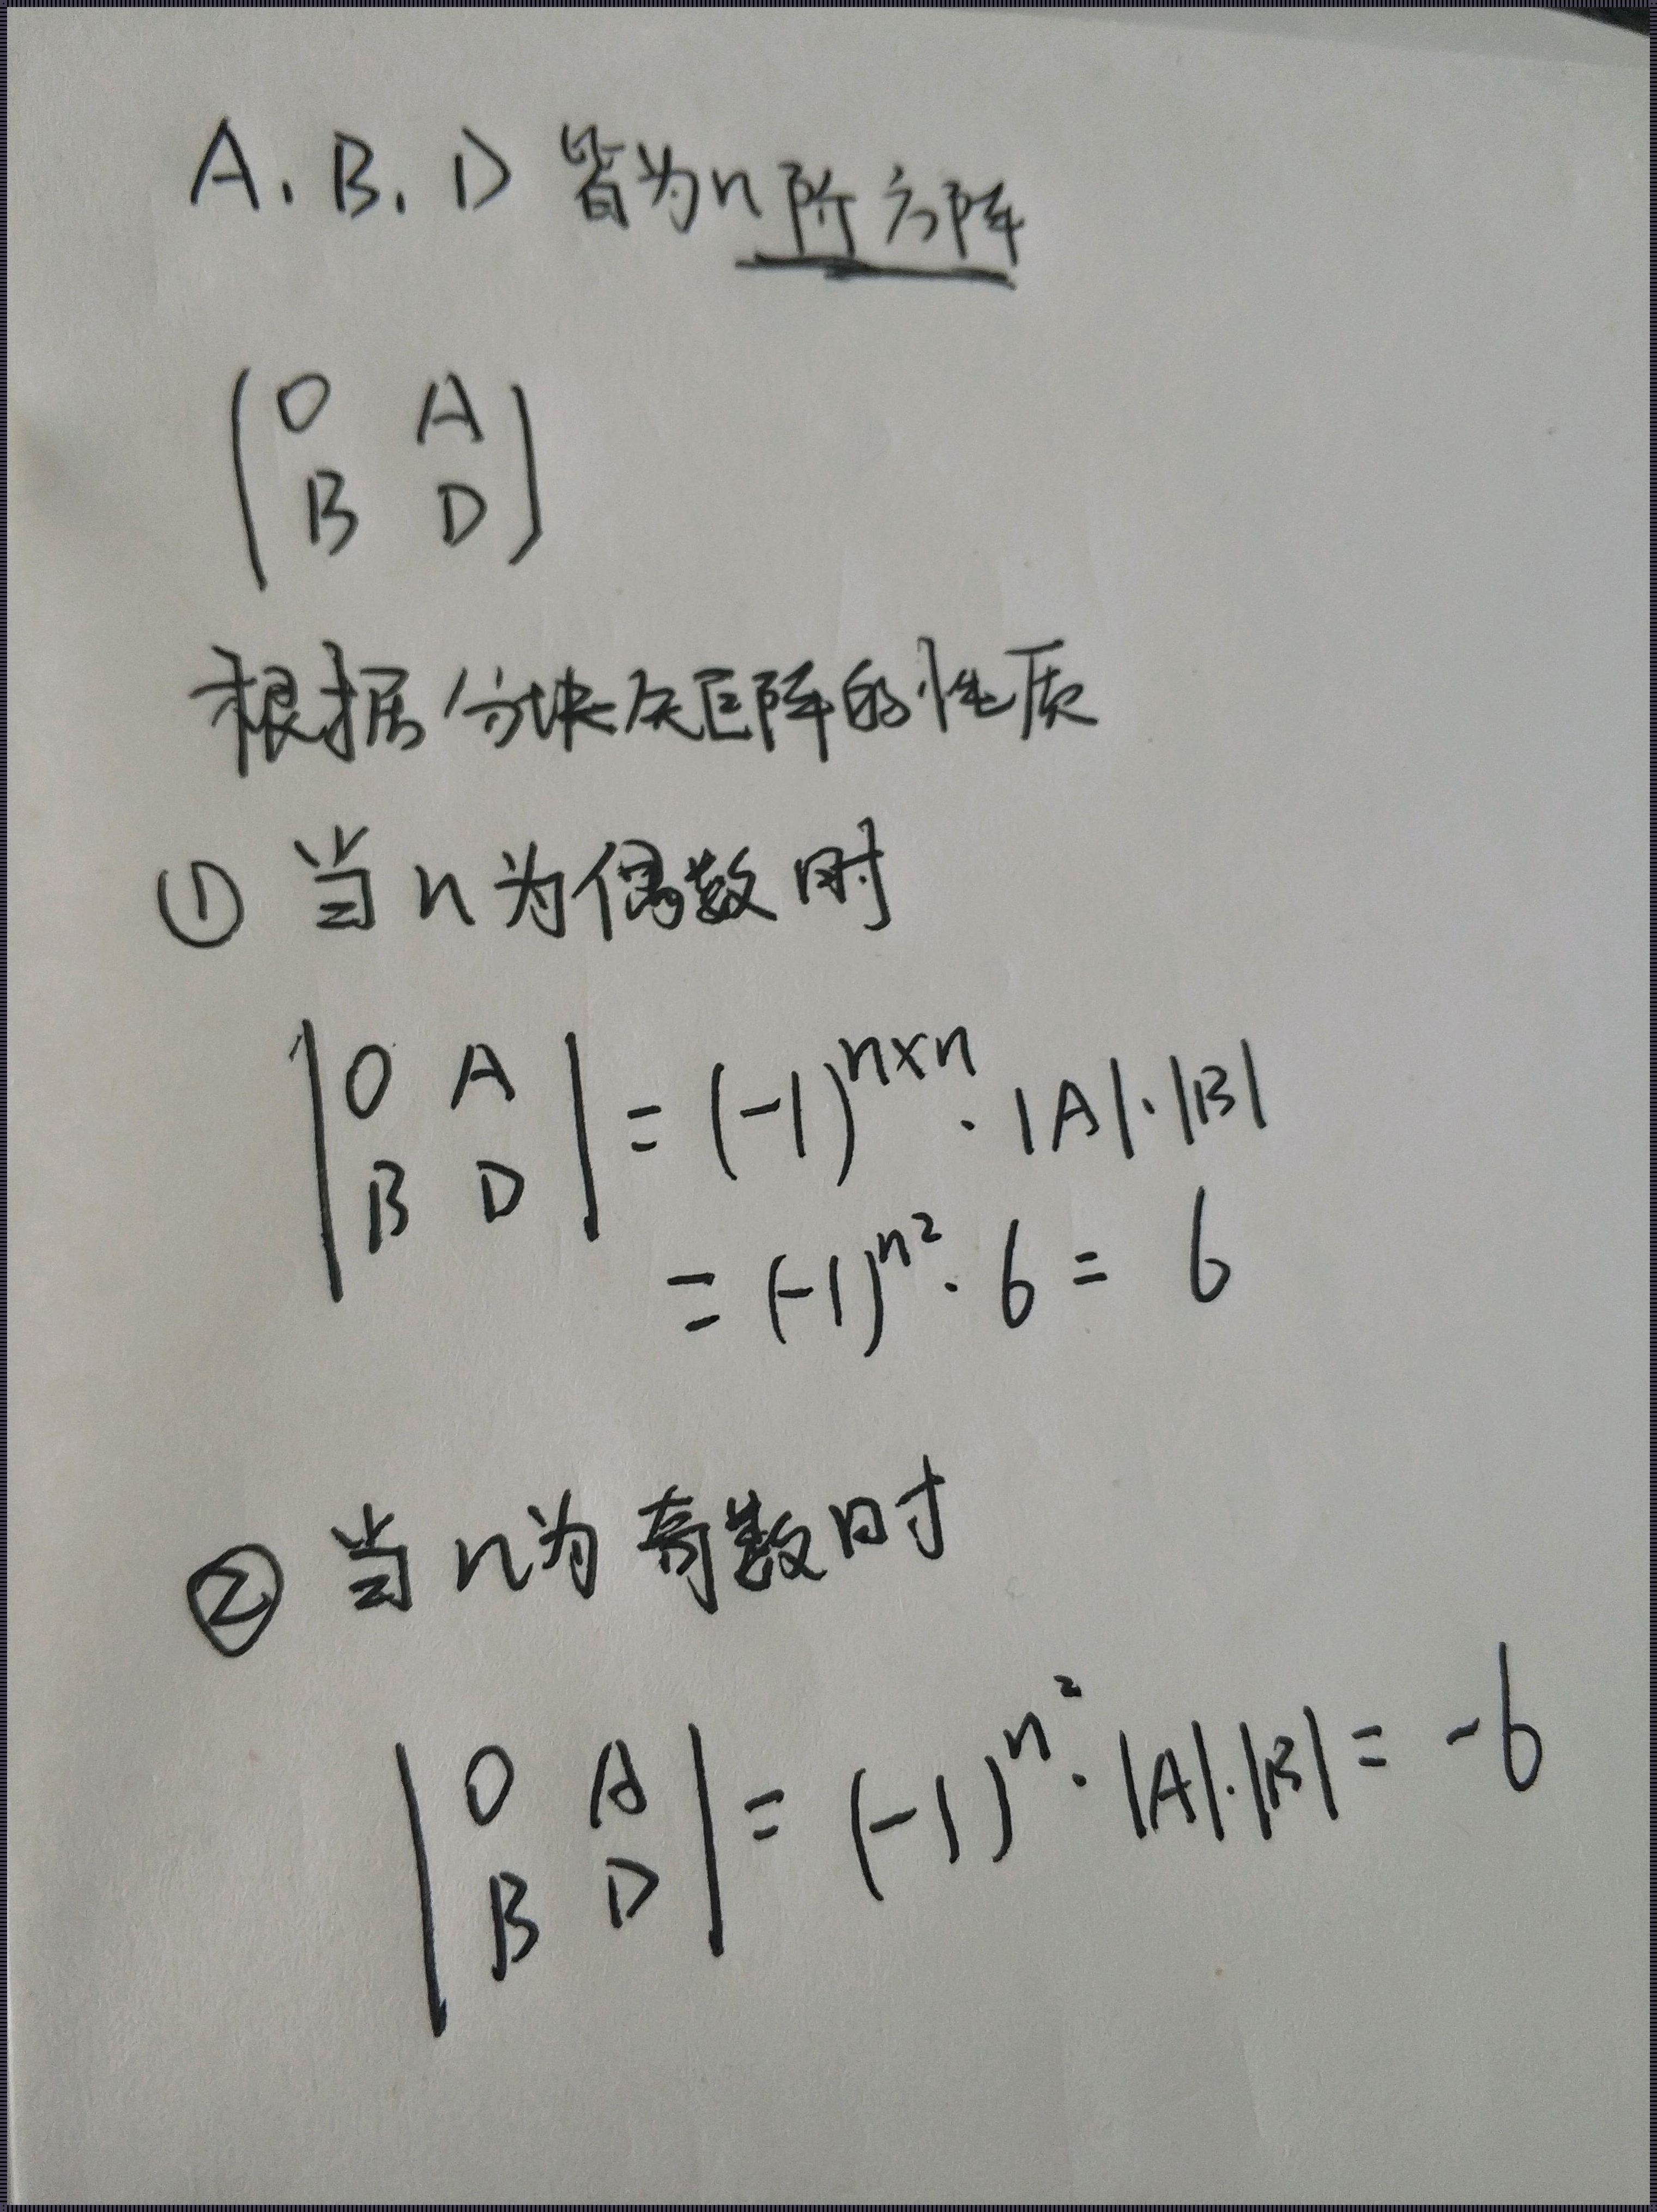 A. B. D 皆为n阶方阵
( O A
B D )
根据分块矩阵的性质
① 当n为偶数时
| O A
B D | = (-1)^{n×n} · |A|·|B|
= (-1)^{n²} · 6 = 6
② 当n为奇数时
| O A
B D | = (-1)^{n²} · |A|·|B| = -6